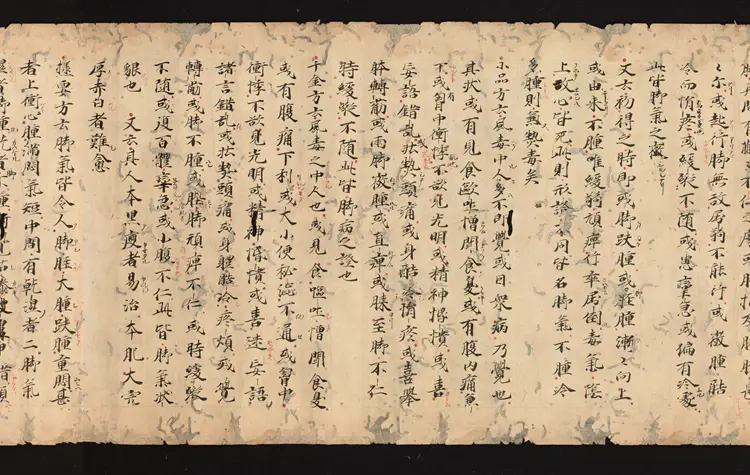 尒或起行脚無故房弱不能行或微腫䏶
冷而㾓疼或緩縱不随或患攣急或偏有冷處
此皆脚氣之𢓜
又云初得之時即或脚趺腫或胫腫漸々向上
或由来不腫唯緩弱頑痺行卒屈倒毒氣陰
上故心皆死此則形證不同皆名脚氣不腫冷
多腫則氣勢毒矣
小品方云風毒中人多不即覺或因衆病乃覺也
其状或有見食欧吐憎聞食臭或有腹内痛兼
下或胷中衝悸不欲見光明或精神惛憒或喜
妄語錯乱或壮熱頭痛或身酷冷㾓疼或喜舉
體轉筋或両脚復腫或直痺或膝至脚不仁
時緩縱不随此皆脚病之證也
千金方云風毒之中人也或見食嘔吐憎聞食臭
或有腹痛下利或大小便秘澁不通或胷中
衝悸不欲見光明或精神惛憒或喜迷妄語
諸言錯乱或壮熱頭痛或身體酷冷疼煩或覺
轉筋或脚不腫或䏶脚頑痺不仁或時緩縱
不随或復百體攣急或小腹不仁此皆脚氣状
貌也 又云凡人本黒瘦者易治本肥大完
厚赤白者難愈
極要方云脚氣皆令人脚胫大腫趺腫重悶甚
者上衝心腫満悶氣短中間有乾濕者二脚氣